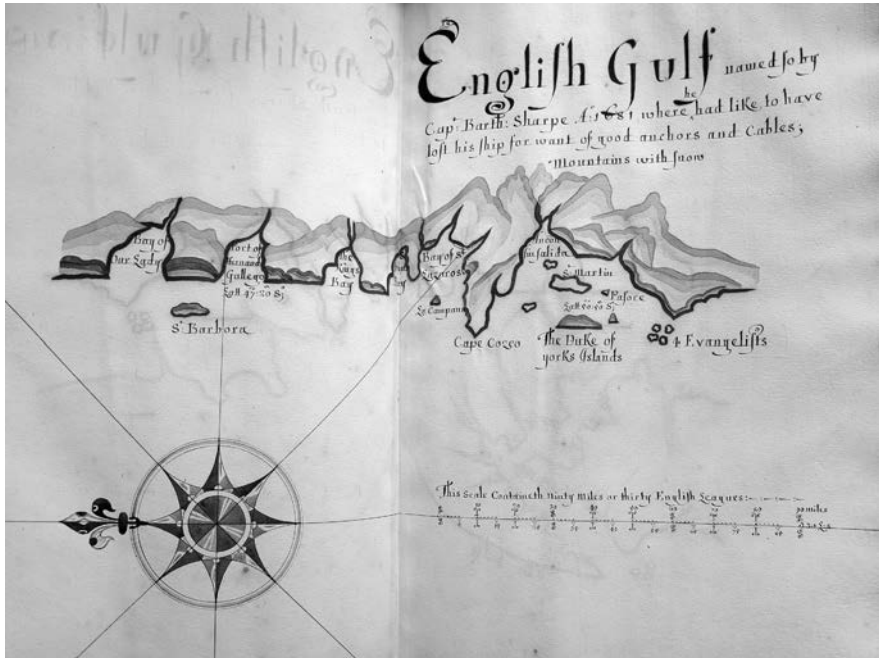 English Gulf named so by
Capt: Barth: Sharpe Ao: 1681 where he had like, to have
lost his ship for want of good anchors and Cables;
Mountains with snow
Bay of
Our Lady
Port of
Gallego
Latt 47:50 S;
the
Kings
Bay
Bay of St
Lazaros
La Campana
Ancon
sin salida
St Martin
Latt 50:50 S;
Pasore
St Barbora
Cape Corço
The Duke of
yorks Islands
4 Evangelists
This Scale Containeth ninty miles or thirty English Leagues:
miles